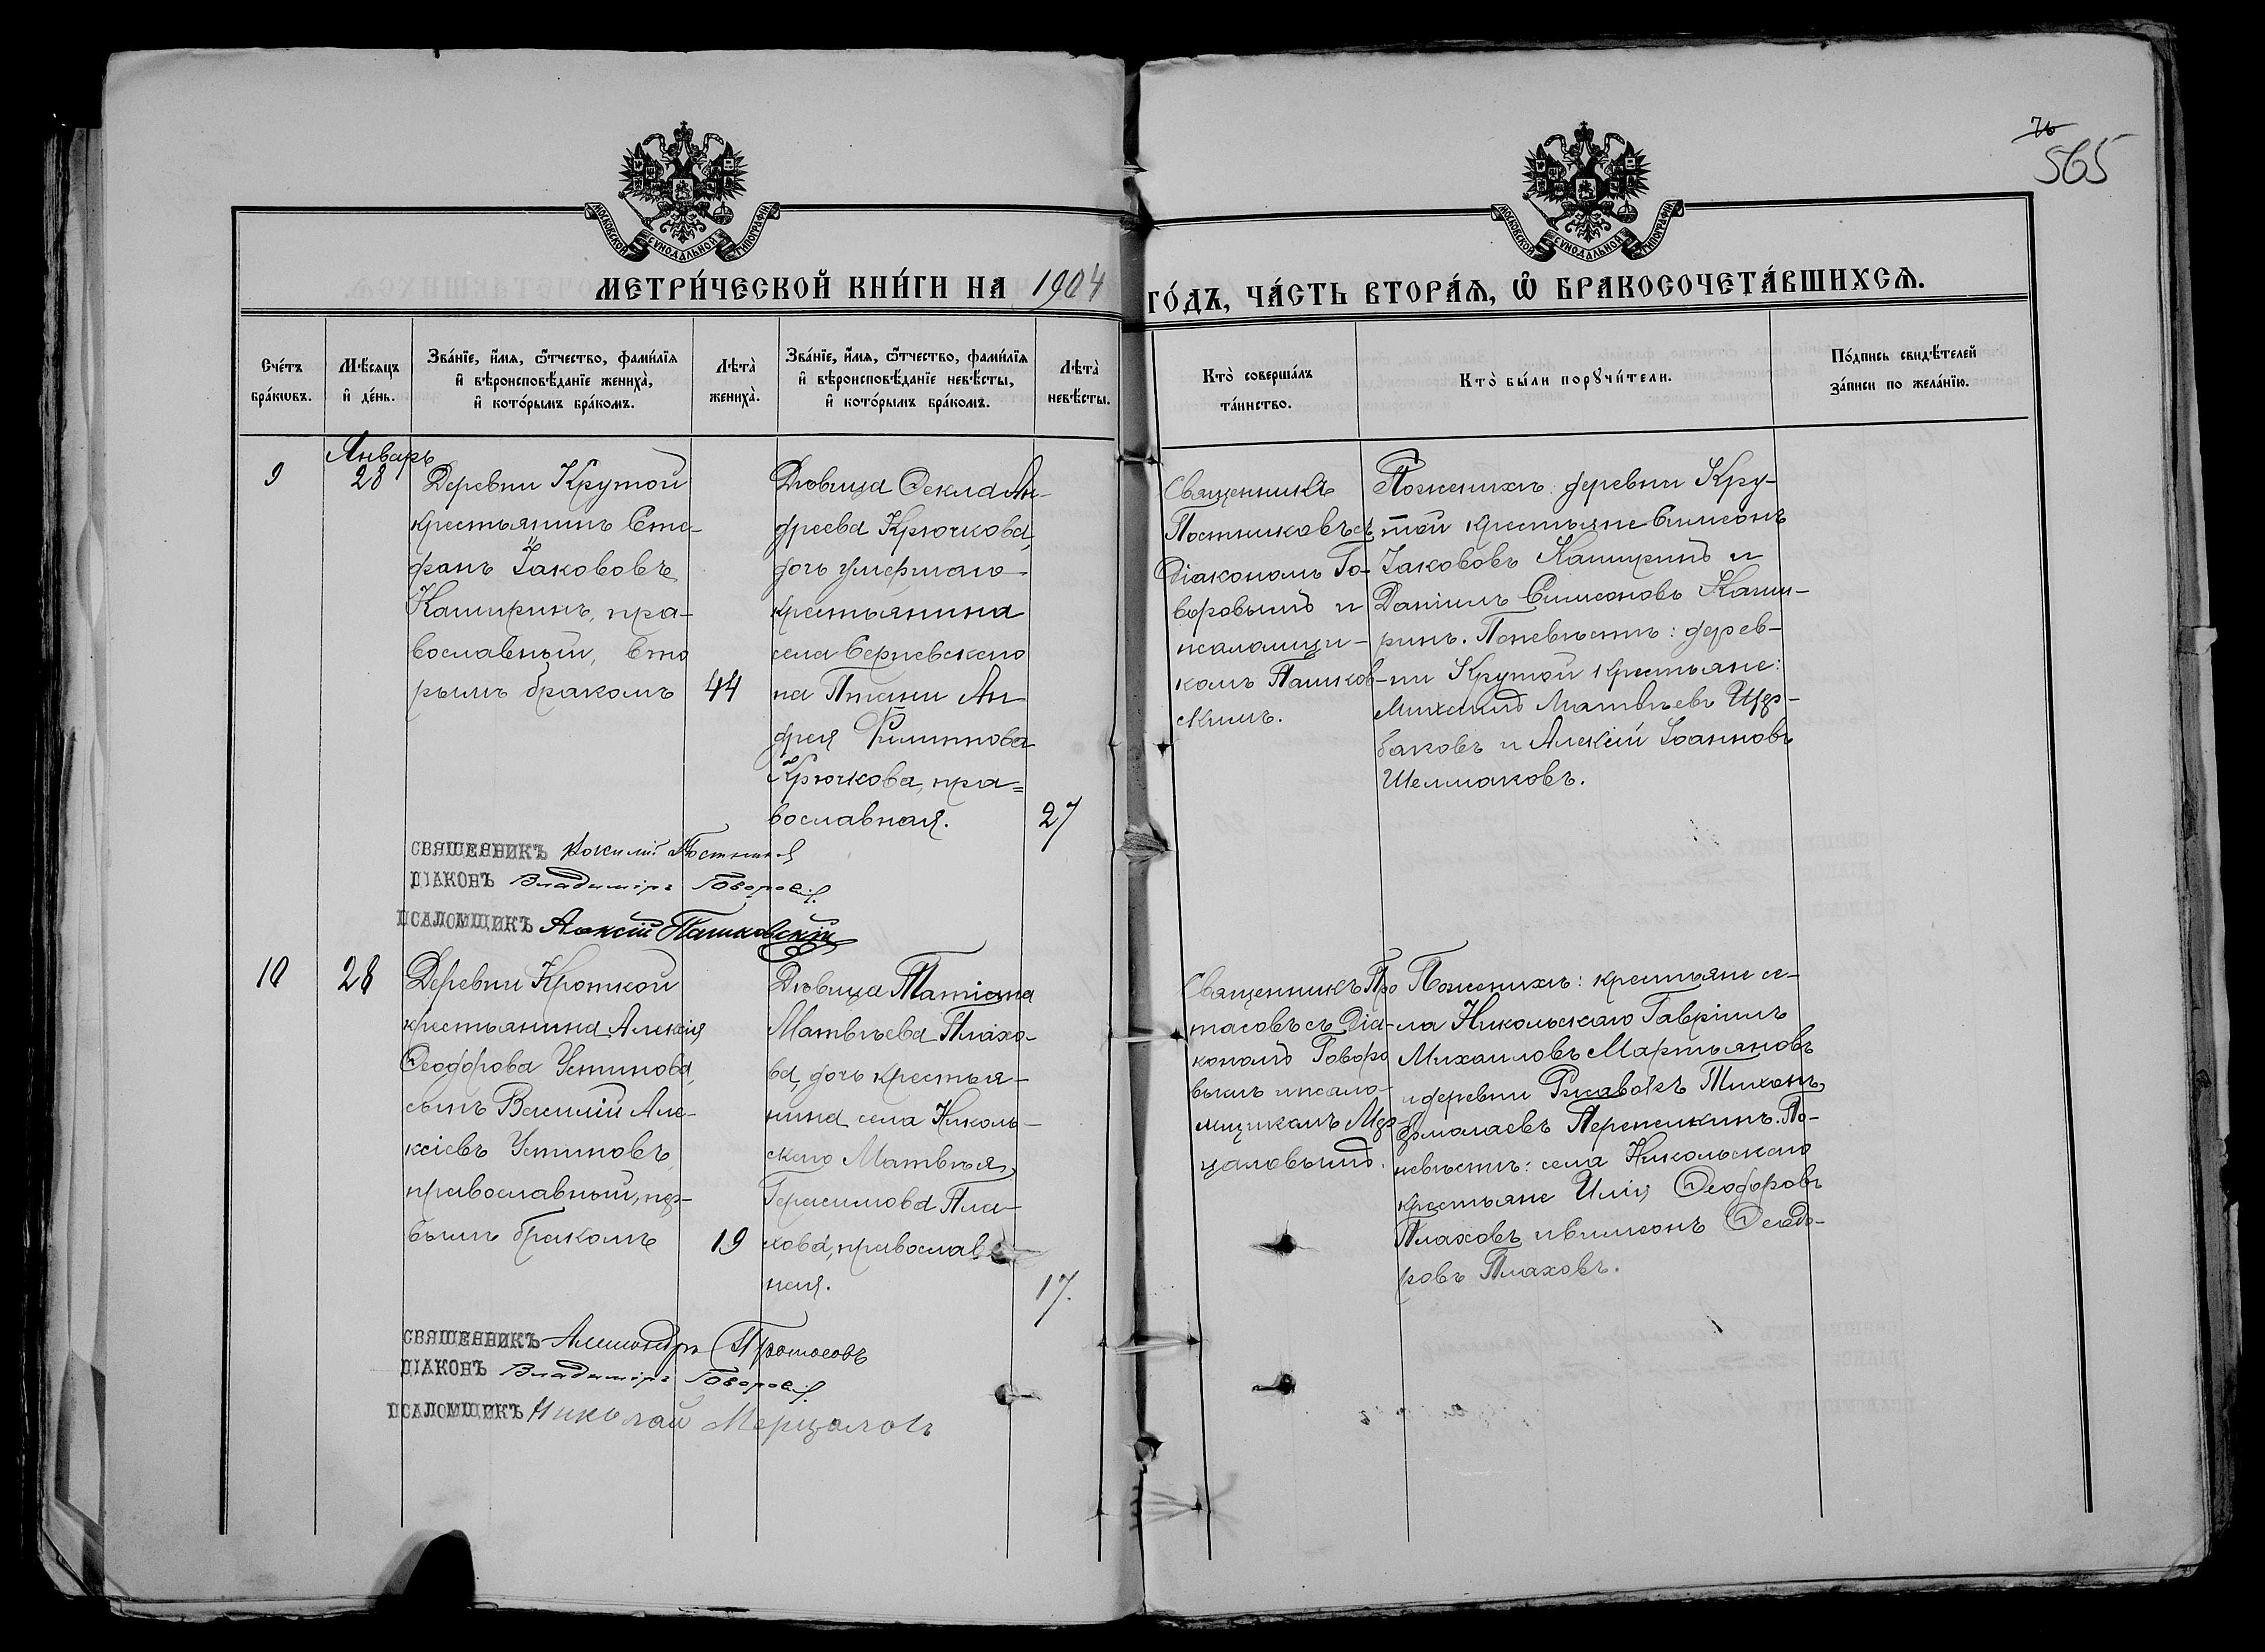 76
565
МОСКОВСКОЙ СѴНОДАЛЬНОЙ ТИПОГРАФІИ
МОСКОВСКОЙ СѴНОДАЛЬНОЙ ТИПОГРАФІИ
МЕТРИ́ЧЕСКОЙ КНИ́ГИ НА 1904 ГО́ДЪ, ЧА́СТЬ ВТОРА́Ѧ, Ѡ҆ БРАКОСОЧЕТА́ВШИХСѦ.
Сче́тъ
бра́кѡвъ.
Мѣ́сѧцъ
и҆ де́нь.
Зва́нїе, и҆́мѧ, ѻ҆́тчество, фами́лїѧ
и҆ вѣроисповѣ́данїе жениха̀,
и҆ кото́рымъ бра́комъ.
Лѣ́та̀
жениха̀.
Зва́нїе, и҆́мѧ, ѻ҆́тчество, фами́лїѧ
и҆ вѣроисповѣ́данїе невѣ́сты,
и҆ кото́рымъ бра́комъ.
Лѣ́та̀
невѣ́сты.
Кто̀ соверша́лъ
та́инство.
Кто̀ бы́ли порꙋчи́тели.
По́дпись свидѣ́телей
за́писи по жела́нїю.
9
Январь
28
Деревни Крутой
крестьянинъ Сте-
фанъ Іакововъ
Каширинъ, пра-
вославный, вто
рымъ бракомъ
44
Дѣвица Ѳекла Ан-
дреева Крючкова,
дочь умершаго
крестьянина
села Сергіевскаго
на Птани Ан
дрея Филиппова
Крючкова, пра=
вославная.
27
Священникъ
Постниковъ съ
Діакономъ Го-
воровымъ и
псаломщи-
комъ Пашков-
скимъ.
По женихѣ: деревни Кру-
той крестьяне Симеонъ
Іакововъ Каширинъ и
Даніилъ Симеоновъ Каши-
ринъ. По невѣстѣ: дерев-
ни Крутой крестьяне:
Михаилъ Матвѣевъ Щер-
баковъ и Алексій Іоанновъ
Шелмаковъ.
СВЯЩЕННИКЪ Постниковъ
ДІАКОНЪ Владиміръ Говоровъ
ПСАЛОМЩИКЪ Алексій Пашковскій
10
28
Деревни Кроткой
крестьянина Алексія
Ѳеодорова Устинова,
сынъ Василій Але-
ксіевъ Устиновъ,
православный, пер-
вымъ бракомъ
19
Дѣвица Татіана
Матвѣева Плахо-
ва, дочь крестья-
нина села Николь-
скаго Матвѣя
Герасимова Пла-
хова, православ
ная.
17.
Священникъ Про
тасовъ съ Діа-
кономъ Говоро
вымъ и псало-
мщикомъ Мер-
цаловымъ.
По женихѣ: крестьяне се-
ла Никольскаго Гавріилъ
Михаиловъ Мартьяновъ
и деревни Тихонъ
Ермолаевъ Перепелкинъ. По-
невѣстѣ: села Никольскаго
крестьяне Илія Ѳеодоровъ
Плаховъ и Симеонъ Ѳеодо-
ровъ Плаховъ.
СВЯЩЕННИКЪ Александръ Протасовъ
ДІАКОНЪ Владиміръ Говоровъ
ПСАЛОМЩИКЪ Николай Мерцаловъ